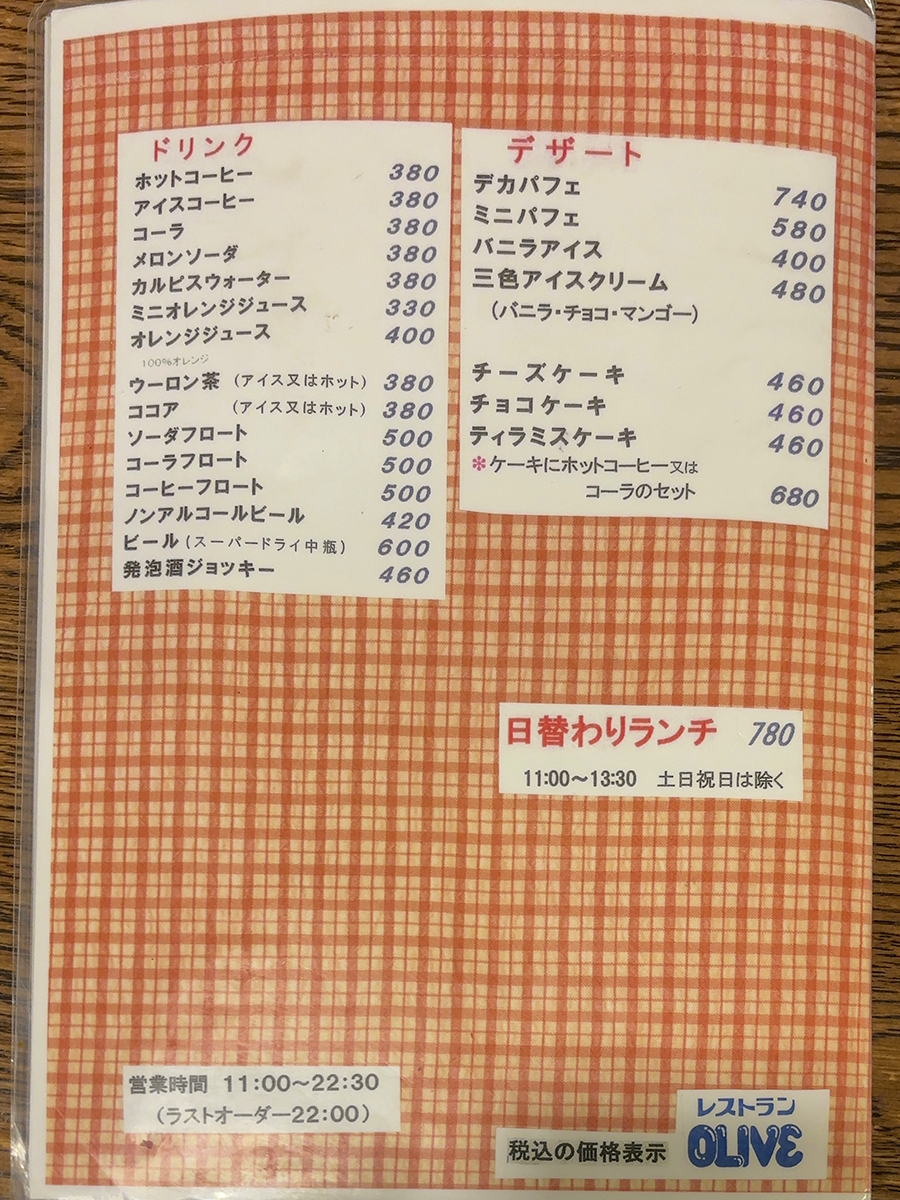 ドリンク
ホットコーヒー 380
アイスコーヒー 380
コーラ 380
メロンソーダ 380
カルピスウォーター 380
ミニオレンジジュース 330
オレンジジュース 400
100%オレンジ
ウーロン茶 (アイス又はホット) 380
ココア (アイス又はホット) 380
ソーダフロート 500
コーラフロート 500
コーヒーフロート 500
ノンアルコールビール 420
ビール(スーパードライ中瓶) 600
発泡酒ジョッキー 460
デザート
デカパフェ 740
ミニパフェ 580
バニラアイス 400
三色アイスクリーム 480
(バニラ・チョコ・マンゴー)
チーズケーキ 460
チョコケーキ 460
ティラミスケーキ 460
*ケーキにホットコーヒー又は
コーラのセット 680
日替わりランチ 780
11:00～13:30 土日祝日は除く
営業時間 11:00～22:30
(ラストオーダー22:00)
税込の価格表示
レストラン
OLIVE